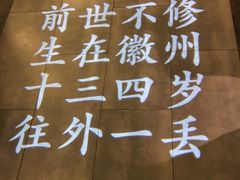 前世不修
生在徽州
十三四岁
往外一丢